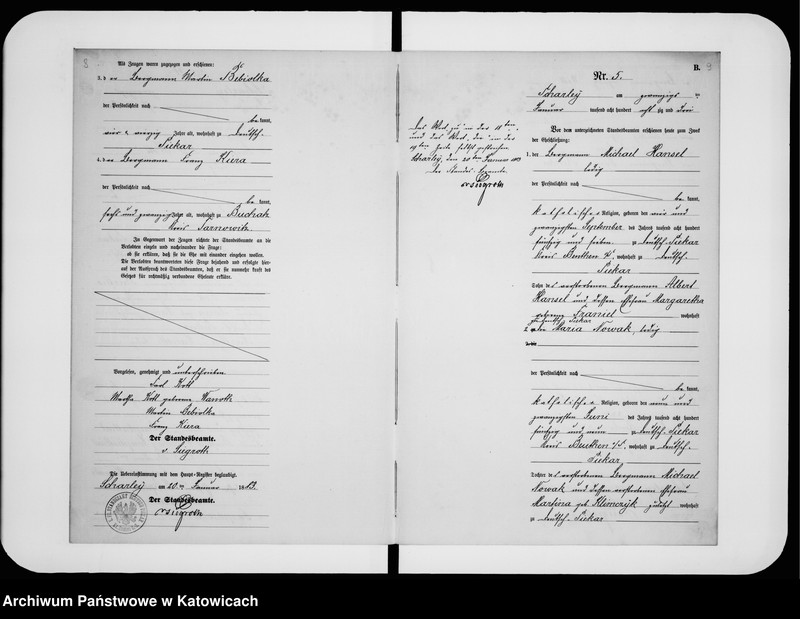 8
Als Zeugen waren zugezogen und erschienen:
3. der Bergmann Martin Cebiolka
der Persönlichkeit nach
be kannt,
vier u. vierzig Jahre alt, wohnhaft zu Deutsch-
Piekar
4. der Bergmann Franz Kura
der Persönlichkeit nach
be kannt,
sechs und zwanzig Jahre alt, wohnhaft zu Buchatz
Kreis Tarnowitz.
In Gegenwart der Zeugen richtete der Standesbeamte an die
Verlobten einzeln und nacheinander die Frage:
ob sie erklären, daß sie die Ehe mit einander eingehen wollen.
Die Verlobten beantworteten diese Frage bejahend und erfolgte hier-
auf der Ausspruch des Standesbeamten, daß er sie nunmehr kraft des
Gesetzes für rechtmäßig verbundene Eheleute erkläre.
Vorgelesen, genehmigt und unterschrieben
Kott
Kott geborene
Martin Cebiolka
Franz Kura
Der Standesbeamte.
v. Siegroth
Die Uebereinstimmung mit dem Haupt-Register beglaubigt.
Scharley am 20ten Januar 1883.
Der Standesbeamte.
v Siegroth
B.
9
Nr. 5.
Scharley am zwanzigsten
Januar tausend acht hundert acht zig und drei
Vor dem unterzeichneten Standesbeamten erschienen heute zum Zweck
der Eheschließung:
1. der Bergmann Michael Hansel
ledig
der Persönlichkeit nach
be kannt,
katholischer Religion, geboren den vier und
zwanzigsten September des Jahres tausend acht hundert
fünfzig und sieben zu Deutsch-Piekar
Kreis Beuthen, wohnhaft zu Deutsch-
Piekar
Sohn des verstorbenen Bergmann Albert
Hansel und dessen Ehefrau Margaretha
geborene Franiel wohnhaft
zu Deutsch Piekar
2. die Maria Nowak, ledig
der Persönlichkeit nach
be kannt,
katholischer Religion, geboren den neun und
zwanzigsten Juni des Jahres tausend acht hundert
fünfzig und neun zu Deutsch-Piekar
Kreis Beuthen, wohnhaft zu Deutsch-
Piekar
Tochter des verstorbenen Bergmann Michael
Nowak und dessen verstorbenen Ehefrau
Marzina geb. Klimczyk zuletzt wohnhaft
zu Deutsch-Piekar
Das Wort „zu“ in der 11ten
und das Wort „die“ in der
Zeile sind gestrichen
Scharley, den 20ten Januar 1883
Der Standesbeamte
v Siegroth
Archiwum Państwowe w Katowicach